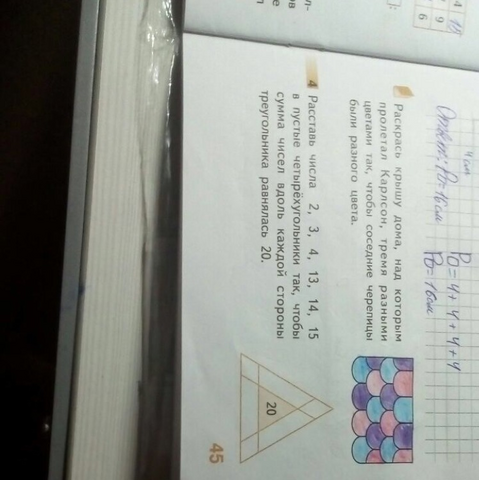 Pо = 4 + 4 + 4 + 4
Pо = 16см
4 см
Ответ: Pо = 16см
Раскрась крышу дома, над которым
пролетал Карлсон, тремя разными
цветами так, чтобы соседние черепицы
были разного цвета.
4 Расставь числа 2, 3, 4, 13, 14, 15
в пустые четырёхугольники так, чтобы
сумма чисел вдоль каждой стороны
треугольника равнялась 20.
20
45